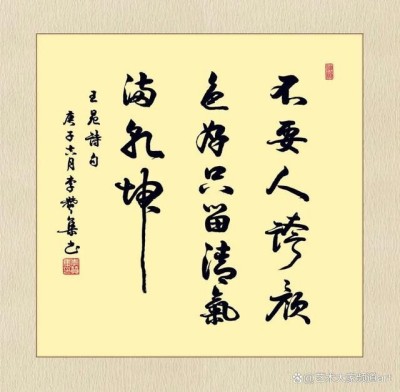 不要人誇顏
色好只留清氣
满乾坤
王冕詩句
庚子六月李